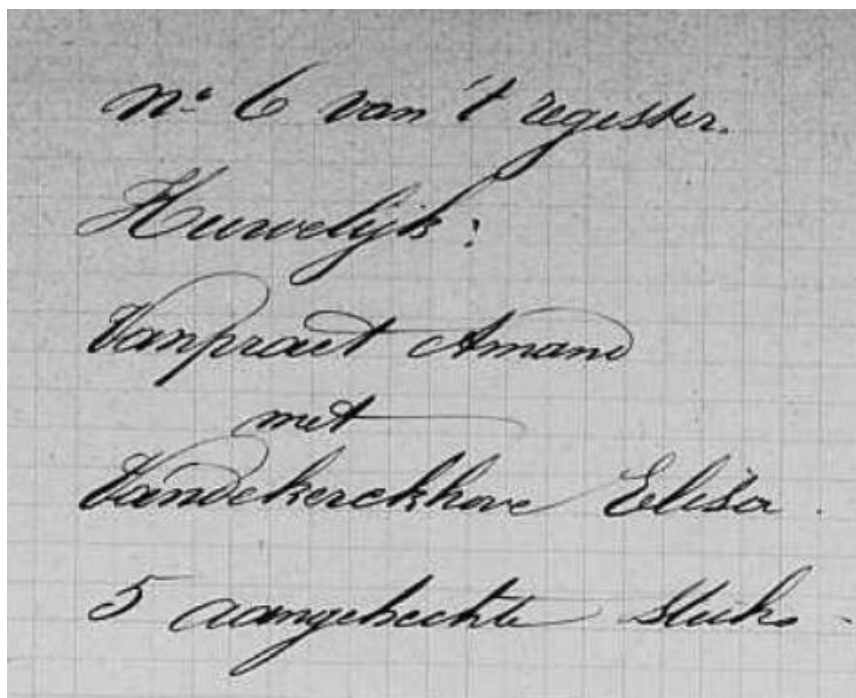 n° 6 van 't register.
Huwelijk:
Vanpraet Amand
met
Vandekerckhove Elisa.
5 aangehechte stuks.